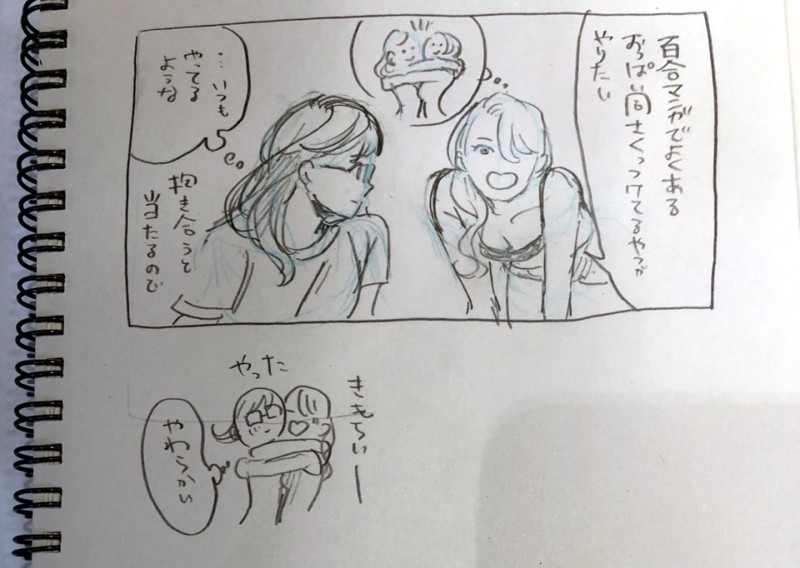 百合マンガでよくある
おっぱい同士くっつけてるやつが
やりたい
…いつも
やってる
ような
抱き合うと
当たるので
やった
きもちぃー
やわらかい